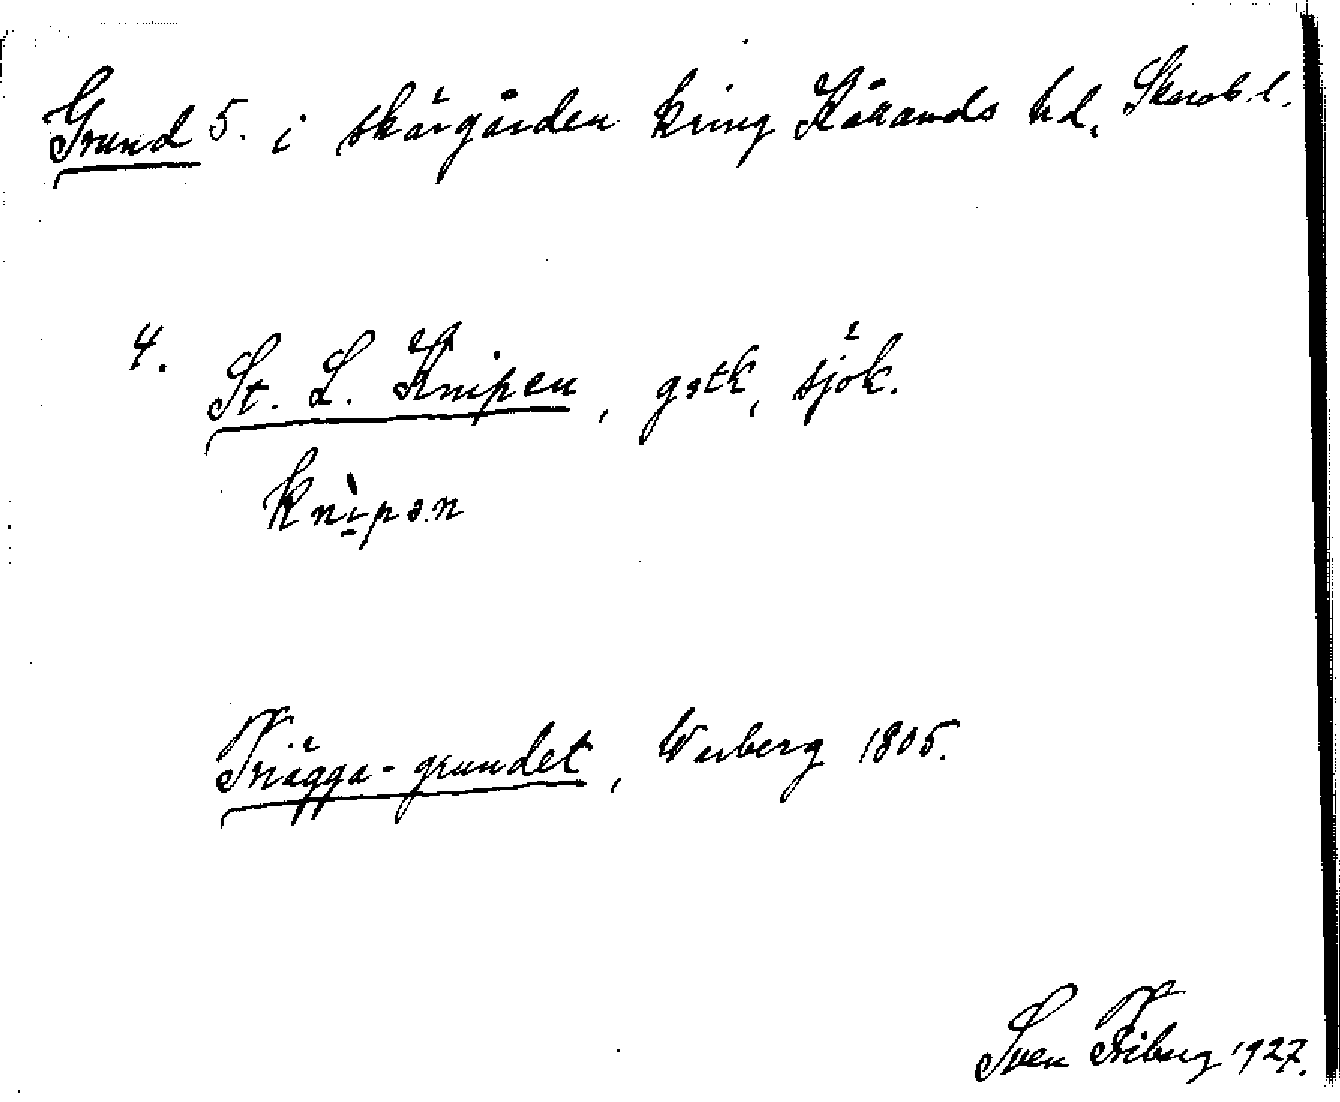 Grund 5. i skärgården kring Kållands hd, Skarab. l.
4. St. L. Knipen, gstk, sjök.
knìpən
Trägga-grundet, Werberg 1805.
Sven Friberg 1927.